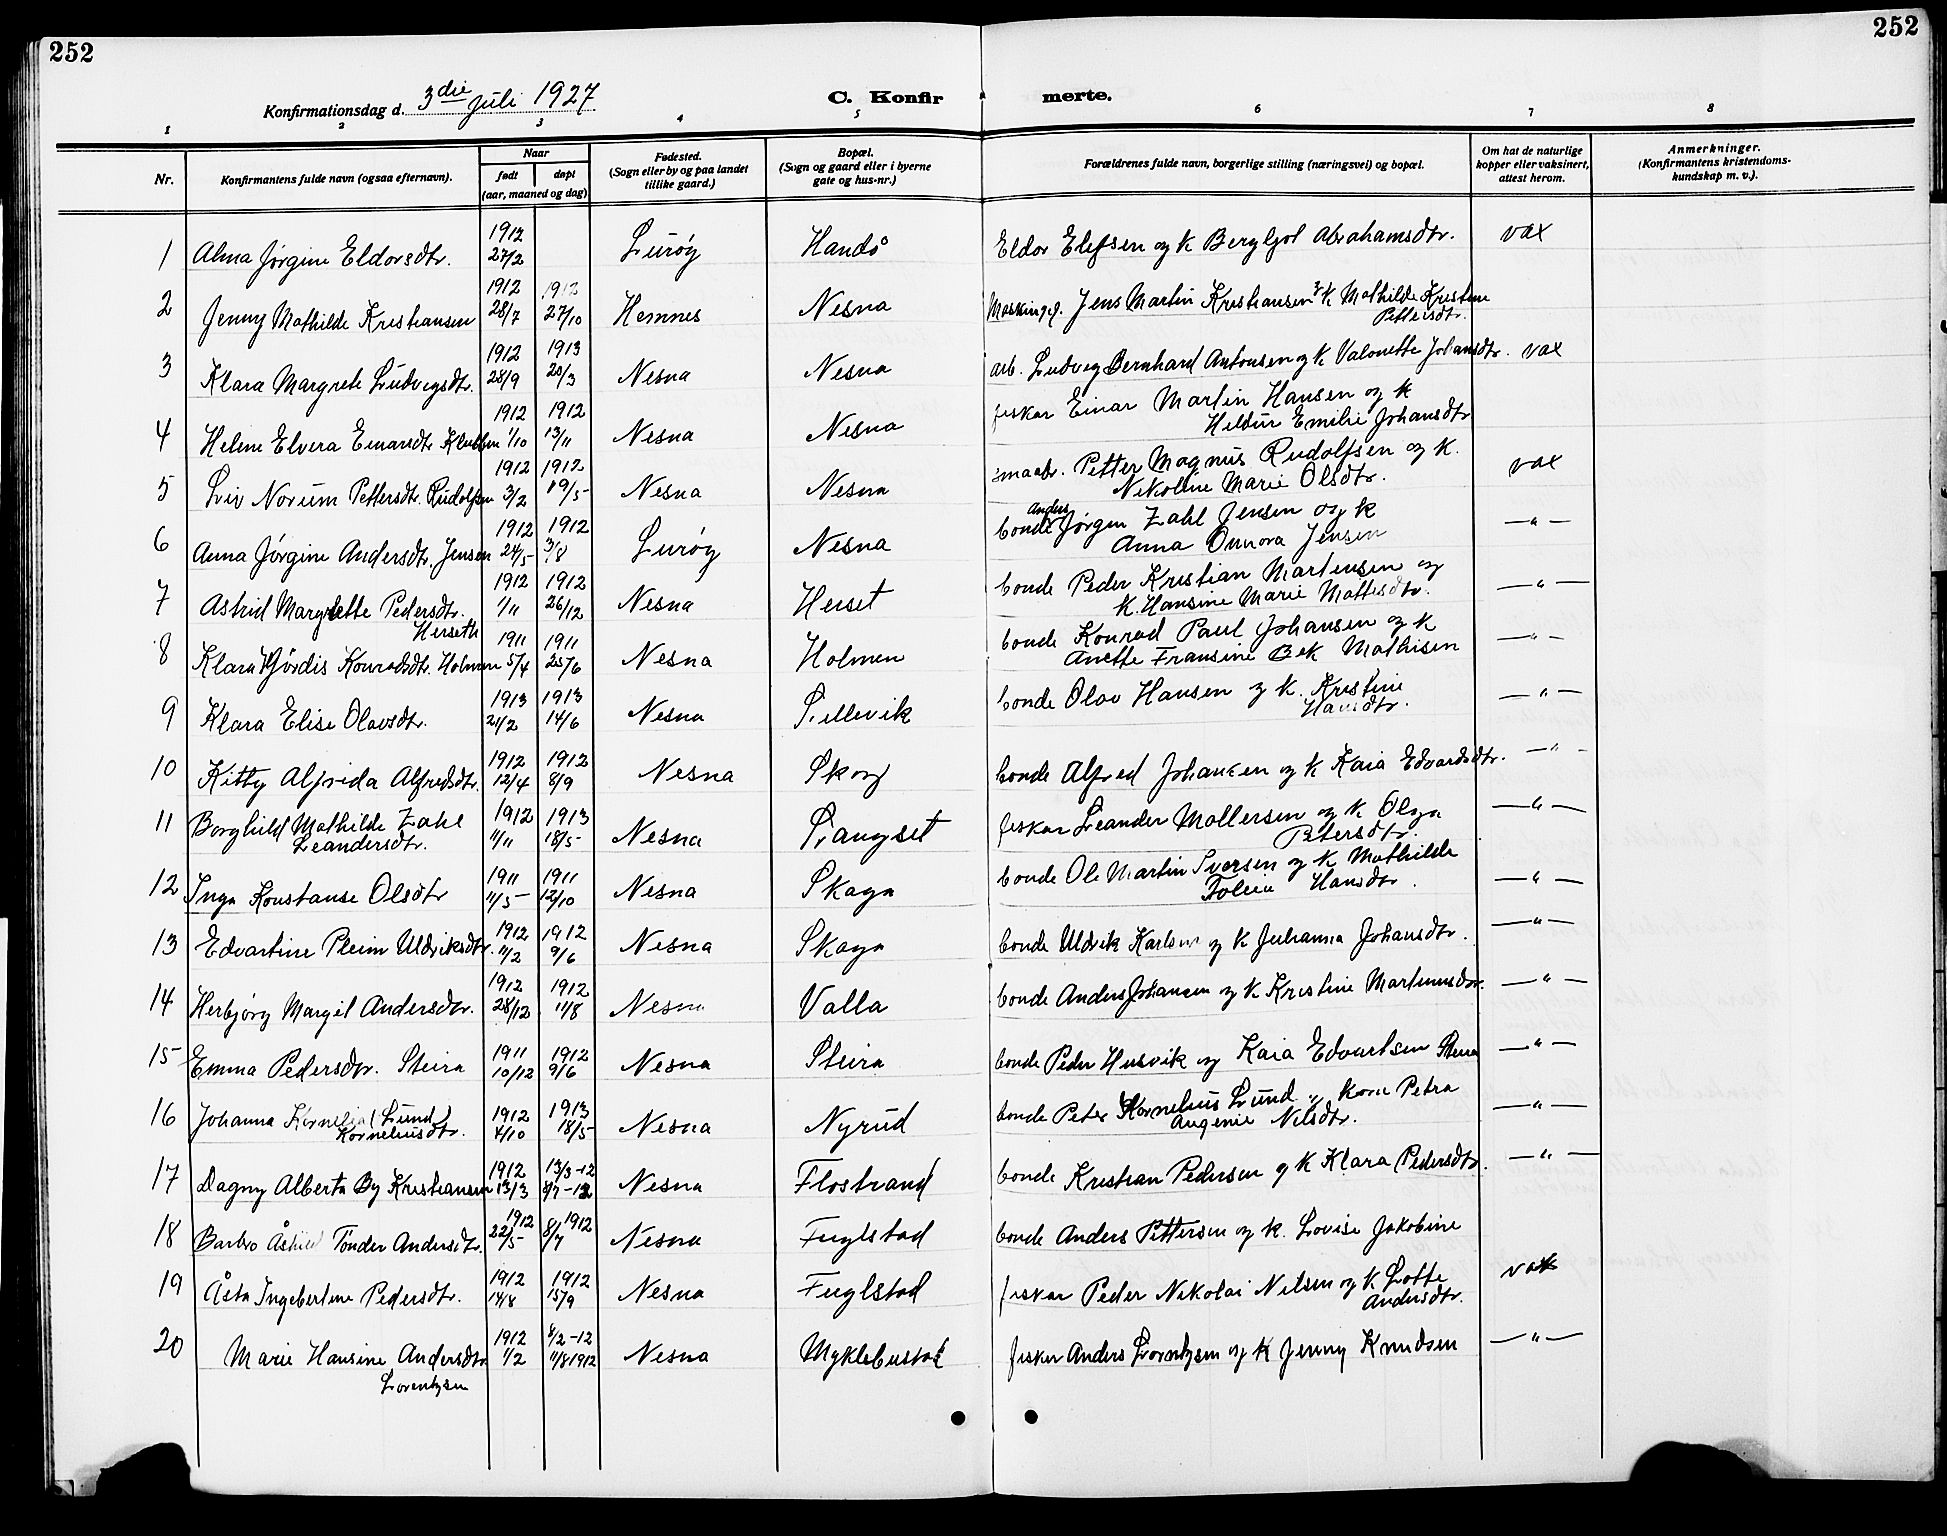 252
252
Konfirmationsdag d. 3die juli 1927
C. Konfirmerte.
1 2 3 4 5 6 7 8
Nr.
Konfirmantens fulde navn (ogsaa efternavn).
Naar
født døpt
(aar, maaned og dag)
Fødested.
(Sogn eller by og paa landet
tillike gaard.)
Bopæl.
(Sogn og gaard eller i byerne
gate og hus-nr.)
Forældrenes fulde navn, borgerlige stilling (næringsvei) og bopæl.
Om hat de naturlige
kopper eller vaksinert,
attest herom.
Anmerkninger.
(Konfirmantens kristendoms-
kundskap m. v.).
1 Alma Jørgine Eldorsdtr. 1912 27/2 Lurøy Handå Eldor Elefsen og k Bergljot Abrahamsdtr. vax
2 Jenny Mathilde Kristiansen 1912 28/7 1912 27/10 Hemnes Nesna Maskingf. Jens Martin Kristiansen & k Mathilde Kristine
Pettersdtr.
3 Klara Margrete Ludvigsdtr. 1912 28/9 1913 20/3 Nesna Nesna arb. Ludvig Bernhard Antonsen og k Valonette Johansdtr. vax
4 Helene Elvera Einarsdtr. 1912 1/10 1912 13/11 Nesna Nesna fisker Einar Martin Hansen og k
Hildur Emilie Johansdtr
5 Liv Norum Pettersdtr. Rudolfsen 1912 3/2 1912 19/5 Nesna Nesna smaabr. Petter Magnus Rudolfsen og k.
Nikoline Marie Olsdtr. vax
6 Anna Jørgine Andersdtr. Jensen 1912 24/5 1912 3/8 Lurøy Nesna bonde Anders Jørgen Zahl Jensen og k
Anna Onnora Jensen —"—
7 Astrid Margrette Pedersdtr.
Herseth 1912 1/11 1912 26/12 Nesna Herset bonde Peder Kristian Martensen og
k. Hansine Marie Mattisdtr. —"—
8 Klara Hjördis Konradsdtr. Holmen 1911 5/4 1911 25/6 Nesna Holmen bonde Konrad Paul Johansen og k
Anette Fransine Bek Mathisen —"—
9 Klara Elise Olavsdtr. 1913 21/2 1913 14/6 Nesna Sillevik bonde Olav Hansen og k. Kristine
Hansdtr. —"—
10 Kitty Alfrida Alfredsdtr. 1912 12/4 1912 8/9 Nesna Skog bonde Alfred Johansen og k Kaia Edvardsdtr. —"—
11 Borghild Mathilde Zahl
Leandersdtr. 1912 11/11 1913 18/5 Nesna Langset fisker Leander Mollersen og k Olga
Petersdtr. —"—
12 Inga Konstanse Olsdtr 1911 11/5 1911 12/10 Nesna Skaga bonde Ole Martin Iversen og k Mathilde
Hansdtr. —"—
13 Edvartine Pleim Uldriksdtr. 1912 11/2 1912 9/6 Nesna Skaga bonde Uldrik Karlsen og k Juhanna Johansdtr. —"—
14 Herbjørg Margit Andersdtr. 1912 28/12 1912 11/8 Nesna Valla bonde Anders Johansen og k Kristine Martinusdtr. —"—
15 Emma Pedersdtr. Steira 1911 10/12 1912 9/6 Nesna Steira bonde Peder Husvik og Kaia Edvartsen Steira —"—
16 Johanna Kornelia (Lund)
Korneliusdtr. 1912 4/10 1913 18/5 Nesna Nyrud bonde Peter Kornelius Lund " kone Petra
Augenie Nilsdtr. —"—
17 Dagny Alberta By Kristiansen 1912 13/3 13/3-12 8/7-12 Nesna Flostrand bonde Kristian Pedersen og k Klara Pedersdtr. —"—
18 Barbro Åshild Tönder Andersdtr. 1912 22/5 1912 8/7 Nesna Fuglstad bonde Anders Pettersen og k. Lovise Jakobine
19 Åsta Ingebertine Pedersdtr. 1912 14/8 1912 15/9 Nesna Fuglstad fisker Peder Nikolai Nilsen og k Lotte
Andersdtr. vax
20 Marie Hansine Andersdtr
Lorentzsen 1912 1/2 8/2-12 11/8 1912 Nesna Myklebustad fisker Anders Lorentzsen og k Jenny Knudsen —"—